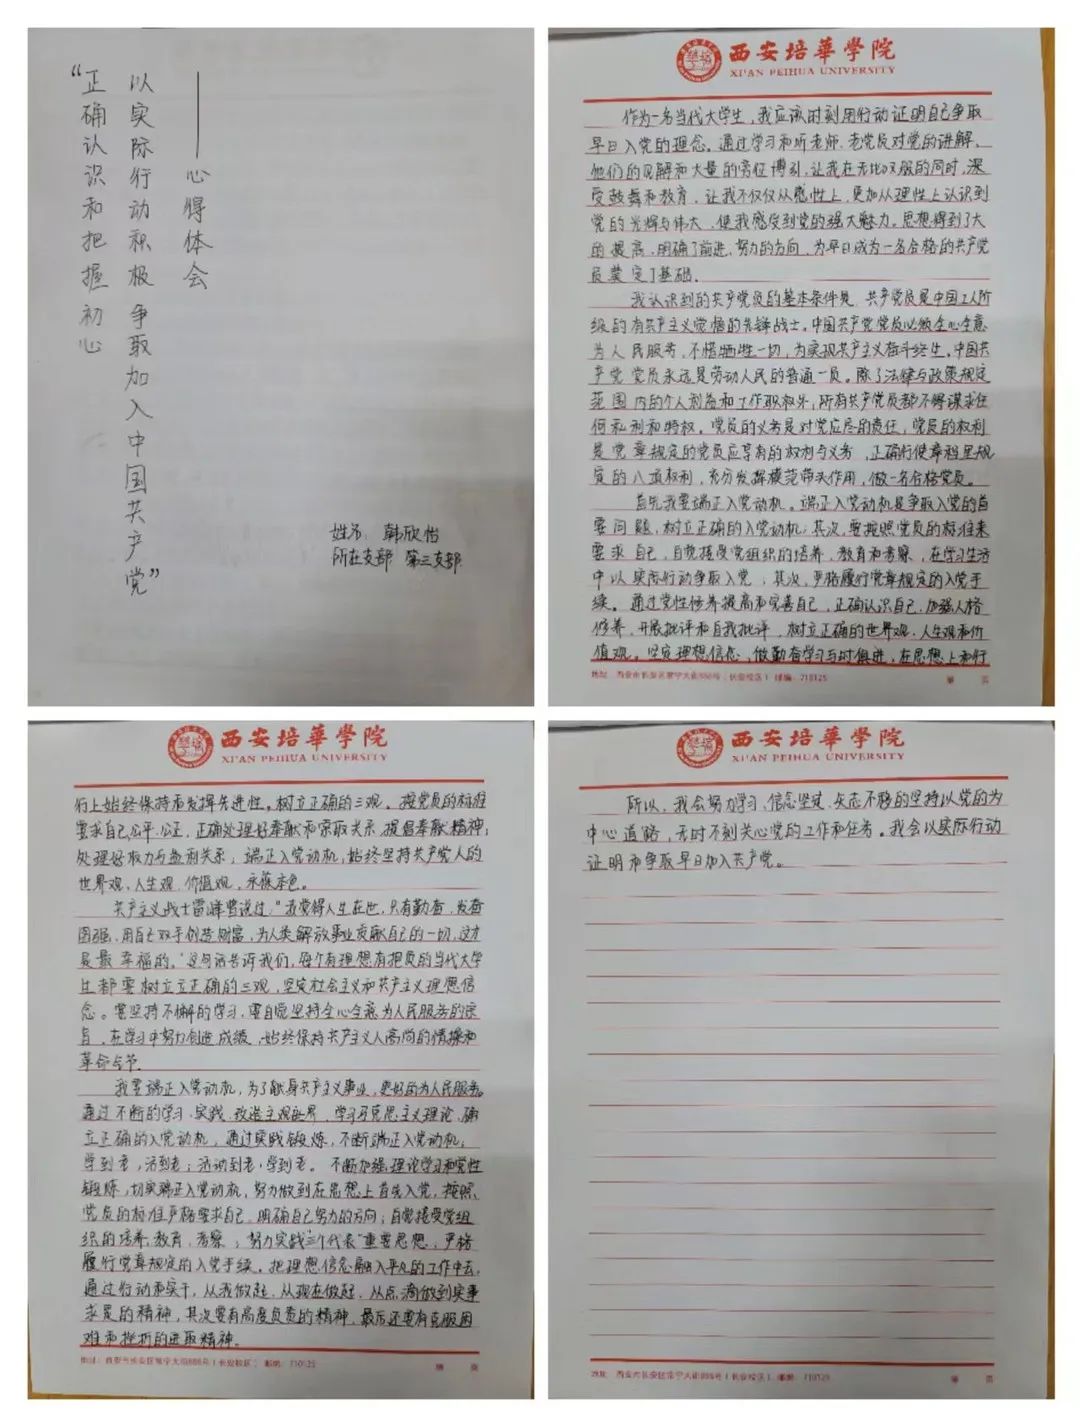 “正确认识和把握初心
以实际行动积极争取加入中国共产党”
——心得体会
姓名：韩欣怡
所在支部 第三支部
西安培華學院
XI'AN PEIHUA UNIVERSITY
作为一名当代大学生，我应该时刻用行动证明自己争取
早日入党的理念。通过学习和听老师、老党员对党的讲解、
他们的见解和大量的旁征博引，让我在无比叹服的同时，深
受鼓舞和教育，让我不仅仅从感性上，更加从理性上认识到
党的光辉与伟大，使我感受到党的强大魅力。思想得到了大
的提高，明确了前进、努力的方向，为早日成为一名合格的共产党
员奠定了基础。
我认识到的共产党员的基本条件是，共产党员是中国工人阶
级的有共产主义觉悟的先锋战士。中国共产党党员必须全心全意
为人民服务，不惜牺牲一切，为实现共产主义奋斗终生。中国共
产党党员永远是劳动人民的普通一员。除了法律与政策规定
范围内的个人利益和工作职权外，所有共产党员都不得谋求任
何私利和特权。党员的义务是对党应尽的责任，党员的权利
是党章规定的党员应享有的权利与义务，正确行使章程里规
定的八项权利，充分发挥模范带头作用，做一名合格党员。
首先我要端正入党动机。端正入党动机是争取入党的首
要问题，树立正确的入党动机；其次，要按照党员的标准来
要求自己，自觉接受党组织的培养、教育和考察，在学习生活
中以实际行动争取入党；其次，严格履行党章规定的入党手
续。通过党性修养提高和完善自己，正确认识自己，加强人格
修养，开展批评和自我批评，树立正确的世界观、人生观和价
值观。坚定理想信念，做勤奋学习与时俱进，在思想上和行
地址：西安市长安区常宁大街888号（长安校区） 邮编：710125 第 页
西安培華學院
XI'AN PEIHUA UNIVERSITY
行上始终保持和发挥先进性。树立正确的三观。按党员的标准
要求自己，公平、公正，正确处理好奉献和索取关系，提倡奉献精神；
处理好权力与盈利关系，端正入党动机，始终坚持共产党人的
世界观、人生观、价值观，永葆本色。
共产主义战士雷锋曾说过，“我觉得人生在世，只有勤奋，发奋
图强，用自己双手创造财富，为人类解放事业贡献自己的一切，这才
是最幸福的。”这句话告诉我们，每个有理想有抱负的当代大学
生都要树立立正确的三观，坚定社会主义和共产主义理想信
念。要坚持不懈的学习，要自觉坚持全心全意为人民服务的宗
旨，在学习中努力创造成绩，始终保持共产主义人高尚的情操和
革命气节。
我要端正入党动机，为了献身共产主义事业，更好的为人民服务。
通过不断的学习、实践，改造主观世界，学习马克思主义理论，确
立正确的入党动机，通过实践锻炼，不断端正入党动机；
学到老，活到老；活动到老，学到老。不断加强理论学习和党性
锻炼，切实端正入党动机，努力做到在思想上首先入党，按照
党员的标准严格要求自己，明确自己努力的方向；自觉接受党组
织的培养、教育、考察；努力实践“三个代表”重要思想，严格
履行党章规定的入党手续。把理想信念融入平凡的工作中去，
通过行动和实干，从我做起，从现在做起，从点滴做到实事
求是的精神，其次要有高度负责的精神，最后还要有克服困
难和挫折的进取精神。
地址：西安市长安区常宁大街888号（长安校区） 邮编：710125 第 页
西安培華學院
XI'AN PEIHUA UNIVERSITY
所以，我会努力学习，信念坚定，矢志不移的坚持以党的为
中心道路，无时不刻关心党的工作和任务。我会以实际行动
证明和争取早日加入共产党。
地址：西安市长安区常宁大街888号（长安校区） 邮编：710125 第 页